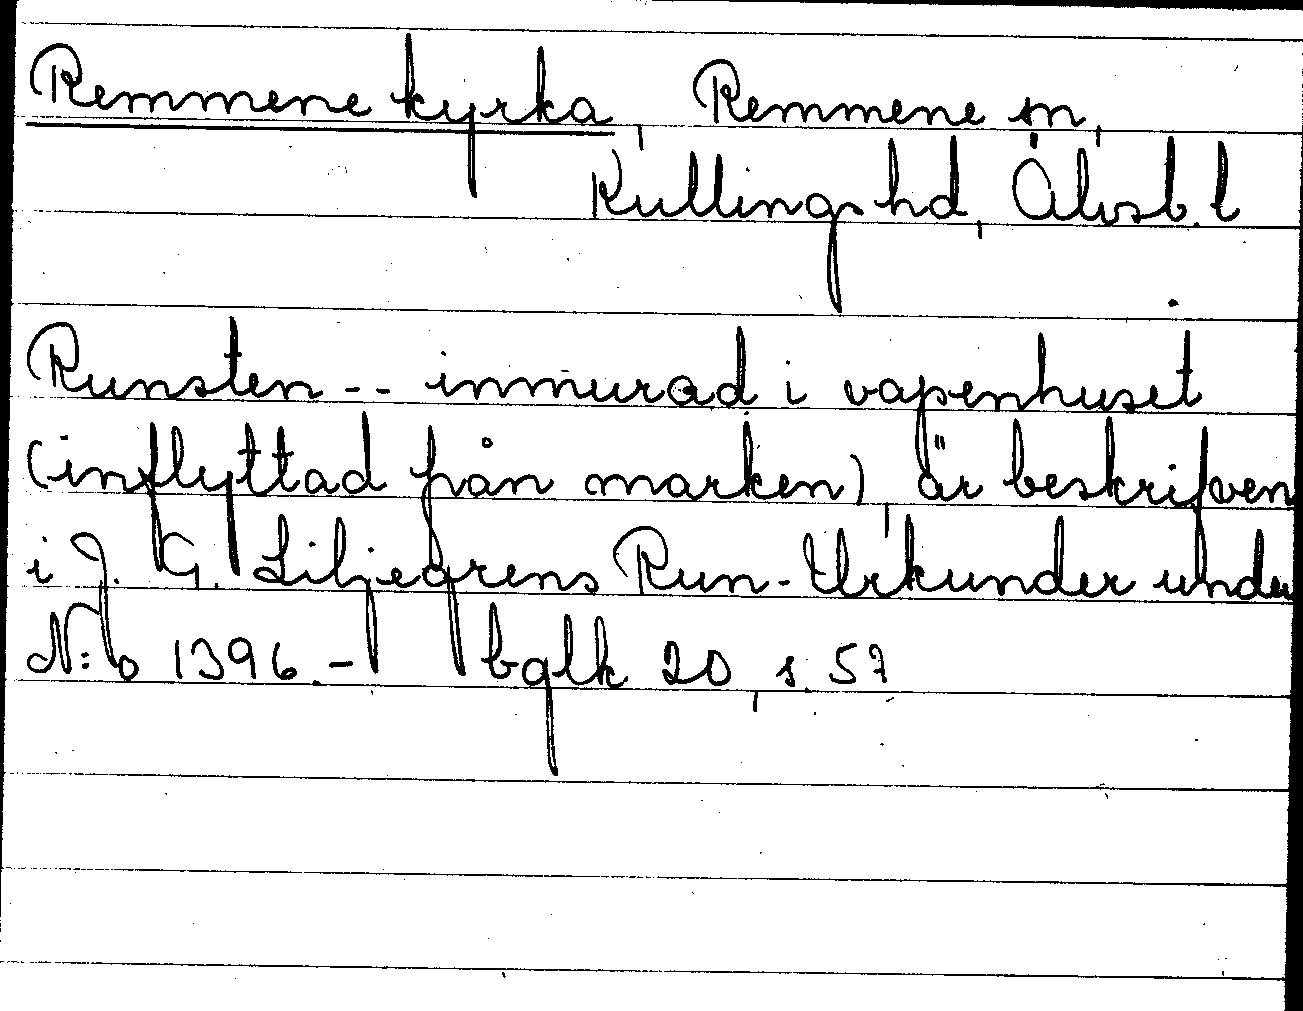 Remmene kyrka, Remmene sn,
Kullings hd, Älvsb. l
Runsten -- inmurad i vapenhuset
(inflyttad från marken), är beskrifven
i J. G. Liljegrens Run-Urkunder under
N:o 1396. - bglk 20, s. 57